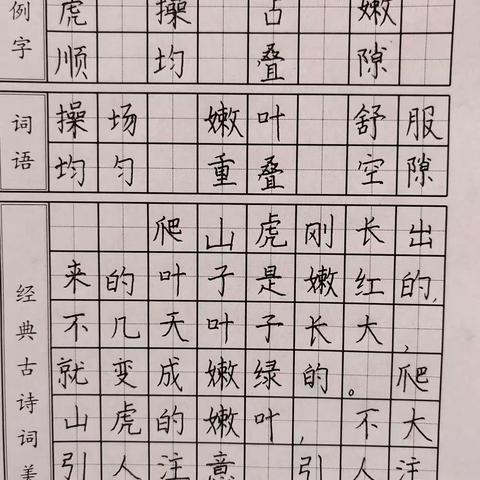 例字
虎 操 占 嫩
顺 均 叠 隙
词语
操场 嫩叶 舒服
均匀 重叠 空隙
经典古诗词美
爬山虎刚长出
来的叶子是嫩红的,
不几天叶子长大,
就变成嫩绿的。爬
山虎的嫩叶,不大
引人注意 引人注